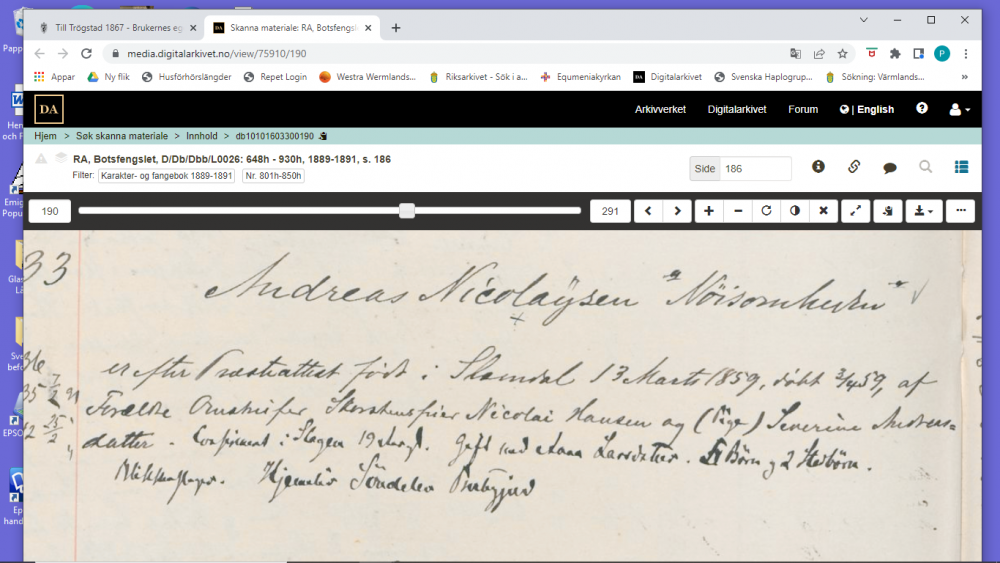 Till Trögstad 1867 - Brukernes eg
Skanna materiale: RA, Botsfengsl
media.digitalarkivet.no/view/75910/190
Appar Ny flik Husförhörslängder Repet Login Westra Wermlands... Riksarkivet - Sök i a... Equmeniakyrkan Digitalarkivet Svenska Haplogrup... Sökning: Värmlands... »
DA Arkivverket Digitalarkivet Forum | English
Hjem > Søk skanna materiale > Innhold > db10101603300190
RA, Botsfengslet, D/Db/Dbb/L0026: 648h - 930h, 1889-1891, s. 186
Filter: Karakter- og fangebok 1889-1891 Nr. 801h-850h
Side 186
190 291
33
Andreas Nicolaÿsen "Nöisomheden"
er efter Præsteattest født i Slemdal 13 Marts 1859, døbt 3/4 59, af
Forældre Skorstensfeier Nicolai Hansen og (Pige) Severine Andreas=
datter. Confirmeret i Slagen 19 Aar gl. Gift med Anna Larsdatter. Børn og 2 Stedbørn.
Hjemsted